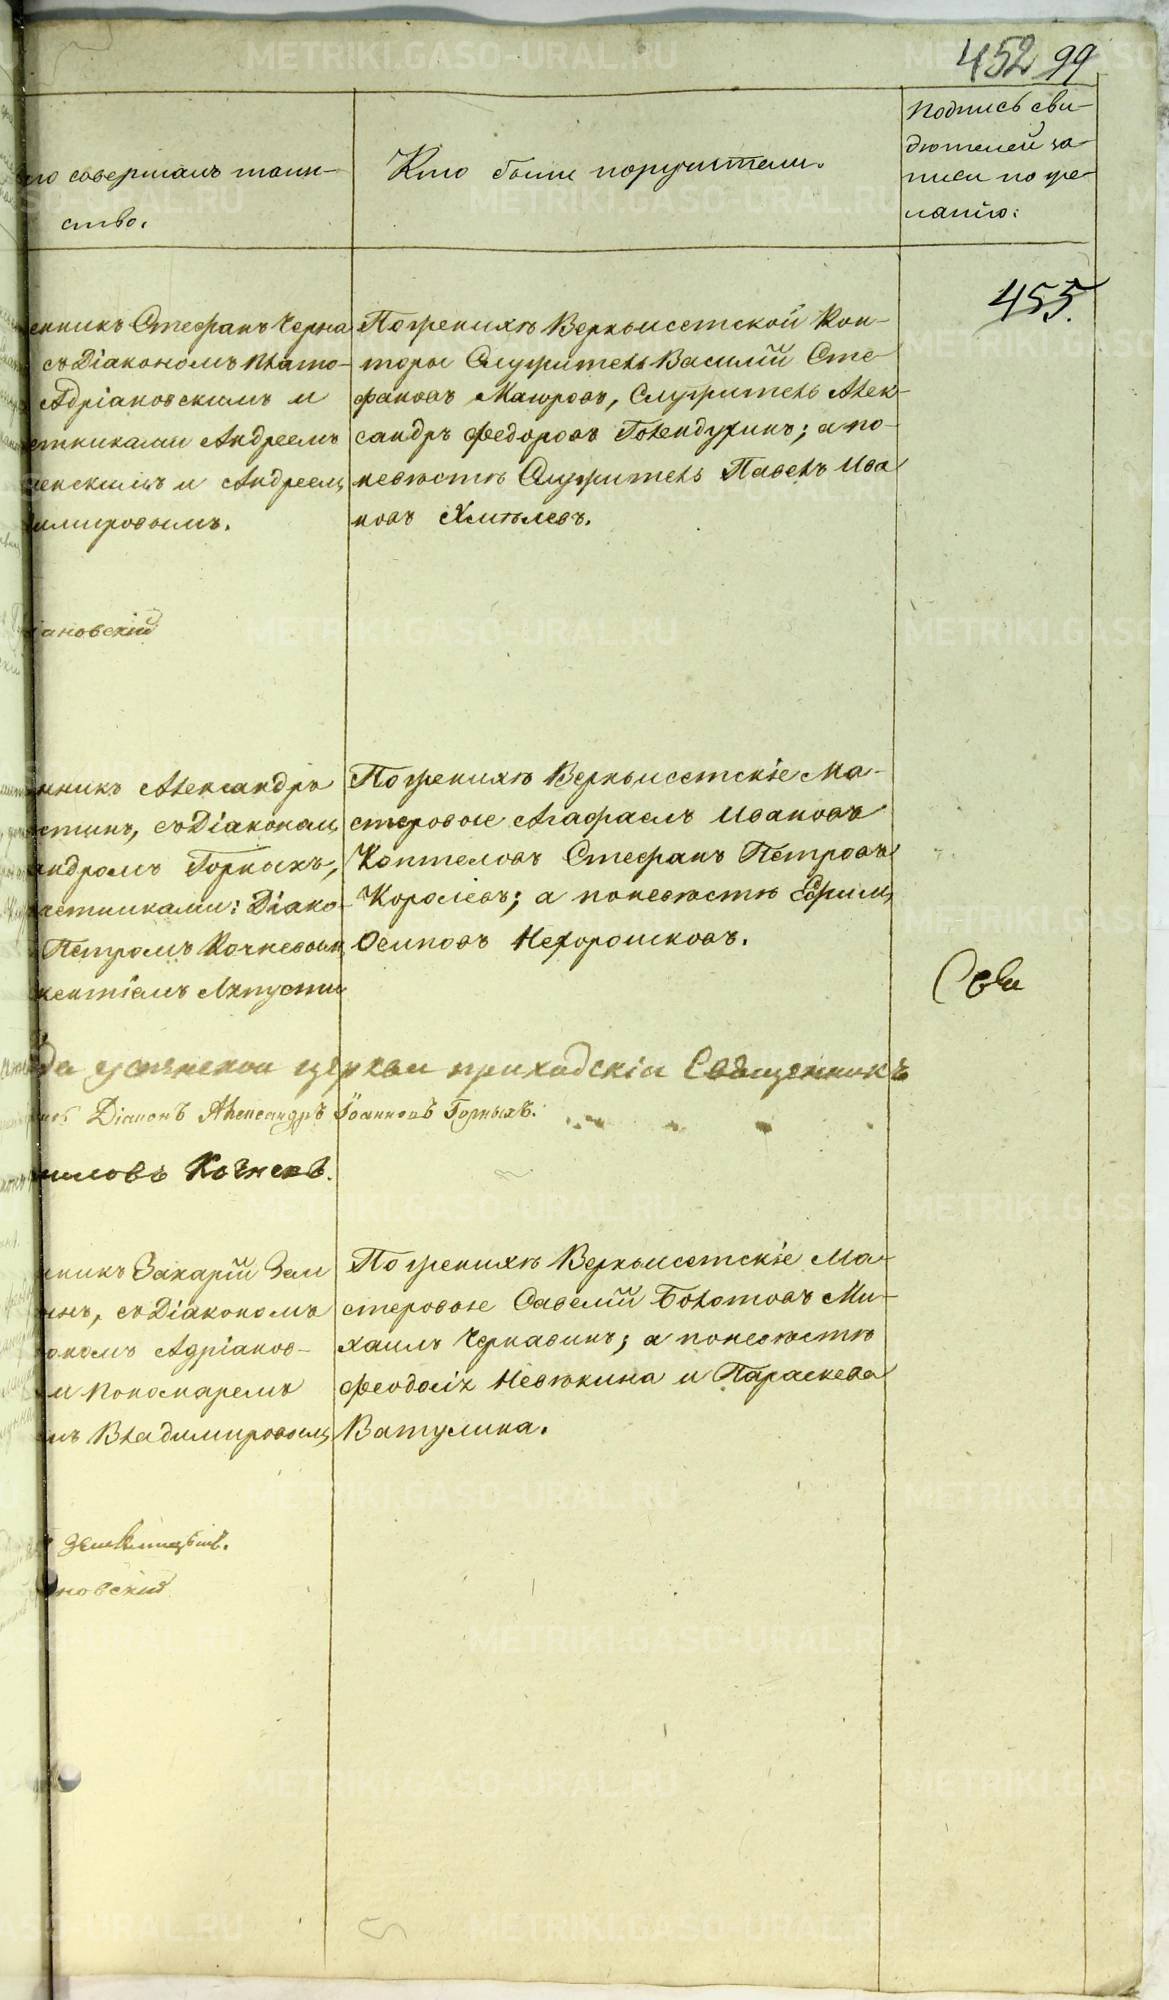 452 99
совершалъ таин-
ство.
Кто были поручители.
Подпись сви-
дѣтелей за-
писи по же-
ланію:
455.
енникъ Стефанъ Черна
съ Діакономъ Плато-
Адріановскимъ и
Андреемъ
и Андреемъ
имировымъ.
По женихѣ Верхъисетской Кон-
торы Служитель Василій Сте-
фановъ Маюровъ, Служитель Алек-
сандръ Федоровъ Голендухинъ; а по
невѣстѣ Служитель Павелъ Ива
новъ Хмѣлевъ.
ановскій
нникъ Александръ
стинъ, съ Діакономъ
андромъ Горныхъ,
Діако-
Петромъ Кочневымъ
кентіемъ Лапусти
По женихѣ Верхъисетскіе Ма-
стеровые Агафаелъ Ивановъ
Коптеловъ Стефанъ Петровъ
Королевъ; а по невѣстѣ Ефимъ
Осиповъ Нехорошковъ.
Сви
да успенской церкви приходскій Священникъ
Діаконъ Александръ Іоанновъ Горныхъ.
иловъ Кочневъ.
нникъ Захарій Зем
инъ, съ Діакономъ
ономъ Адріанов-
и Пономаремъ
мъ Владимировымъ
По женихѣ Верхъисетскіе Ма-
стеровые Савелій Болотовъ Ми-
хаилъ Чернавинъ; а по невѣстѣ
Феодосія Невѣкина и Параскева
Ватулина.
новскій
METRIKI.GASO-URAL.RU